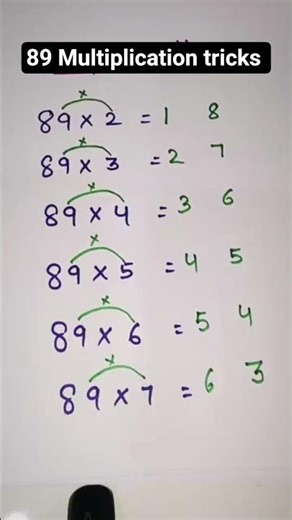 89 Multiplication tricks
x
89 x 2 = 1 8
x
89 x 3 = 2 7
x
89 x 4 = 3 6
x
89 x 5 = 4 5
x
89 x 6 = 5 4
x
89 x 7 = 6 3